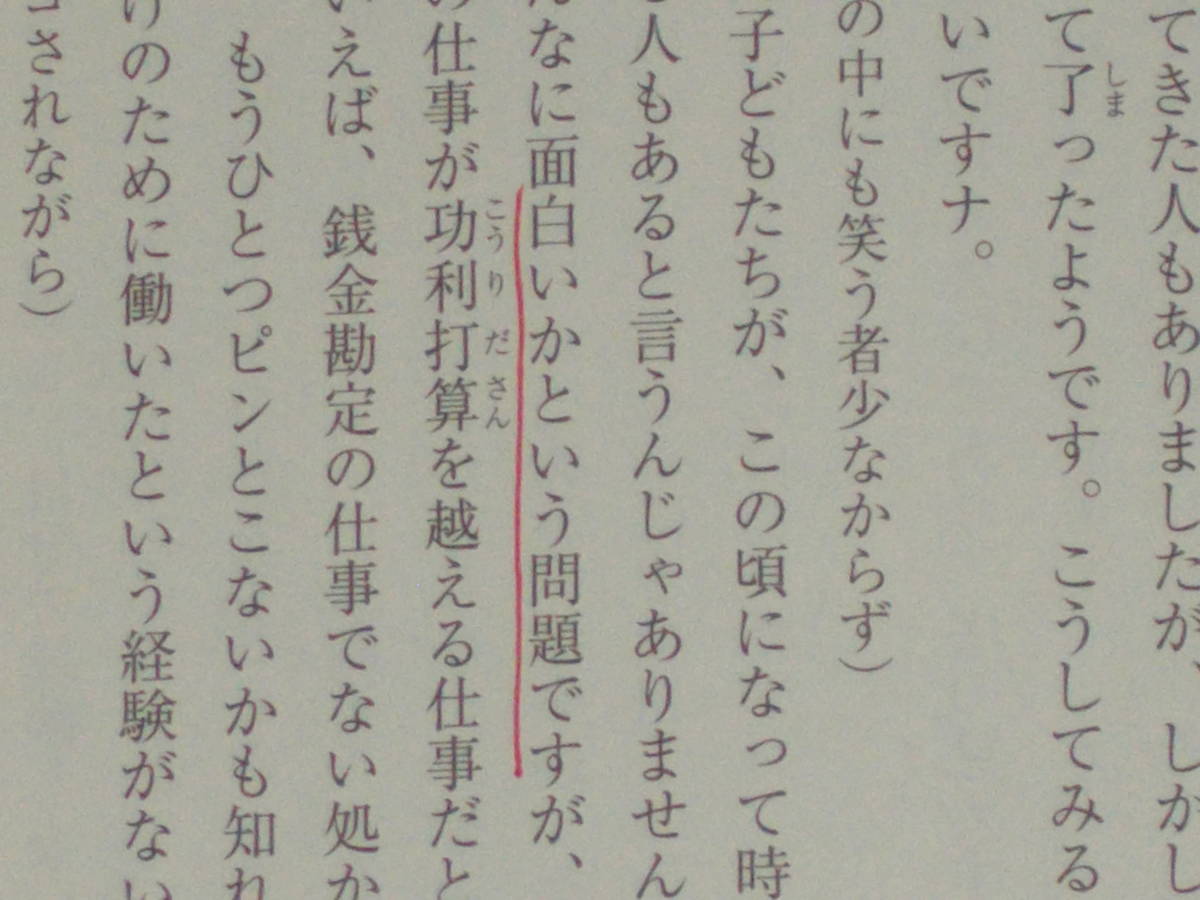 てきた人もありましたが、しかし
て了ったようです。こうしてみる
いですナ。
の中にも笑う者少なからず）
子どもたちが、この頃になって時
人もあると言うんじゃありません
んなに面白いかという問題ですが、
の仕事が功利打算を越える仕事だと
いえば、銭金勘定の仕事でない処か
もうひとつピンとこないかも知れ
けのために働いたという経験がない
されながら）